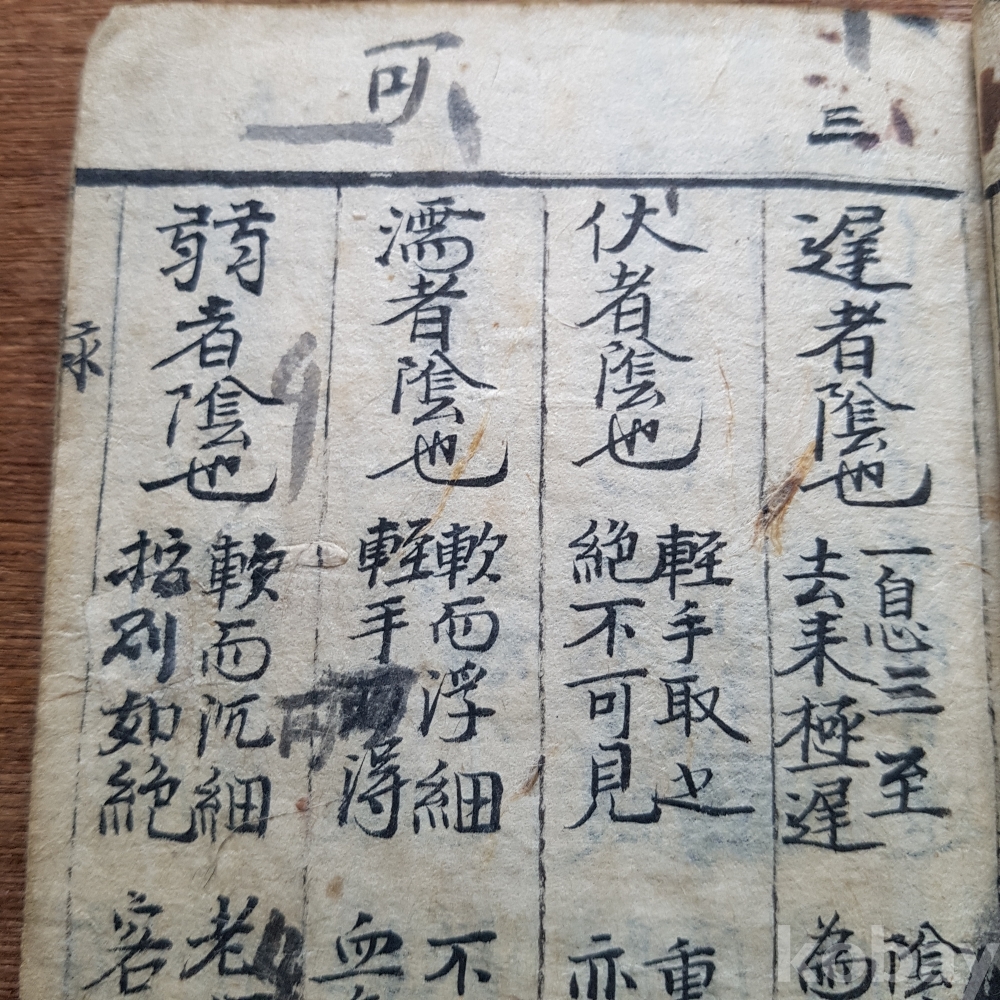 三
可
遲者陰也
一息三至
去来極遲
陰
為
伏者陰也
軽手取之
絶不可見
重
亦
濡者陰也
軟而浮細
軽手乃得
不
血
弱者陰也
軟而沉細
按則如絶
老
客